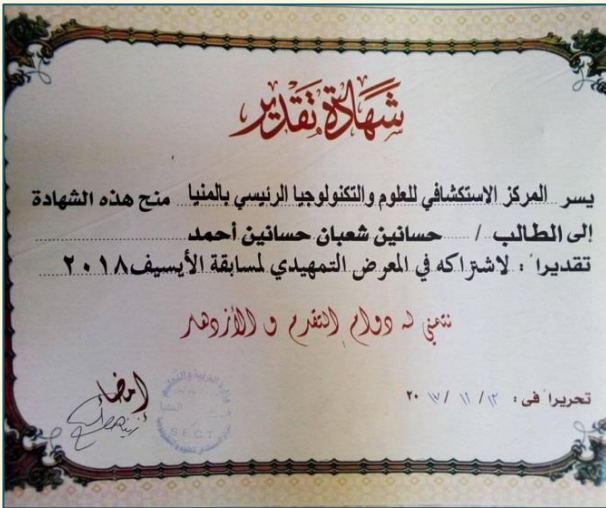 شهادة تقدير
يسر المركز الاستكشافي للعلوم والتكنولوجيا الرئيسي بالمنيا منح هذه الشهادة
إلى الطالب / حسانين شعبان حسانين أحمد
تقديراً : لاشتراكه في المعرض التمهيدي لمسابقة الأيسيف ٢٠١٨
نتمنى له دوام التقدم و الأزدهار
إمضاء
تحريراً في : ١٢ / ١١ / ٢٠١٧
وزارة التربية والتعليم
S.E.C.T